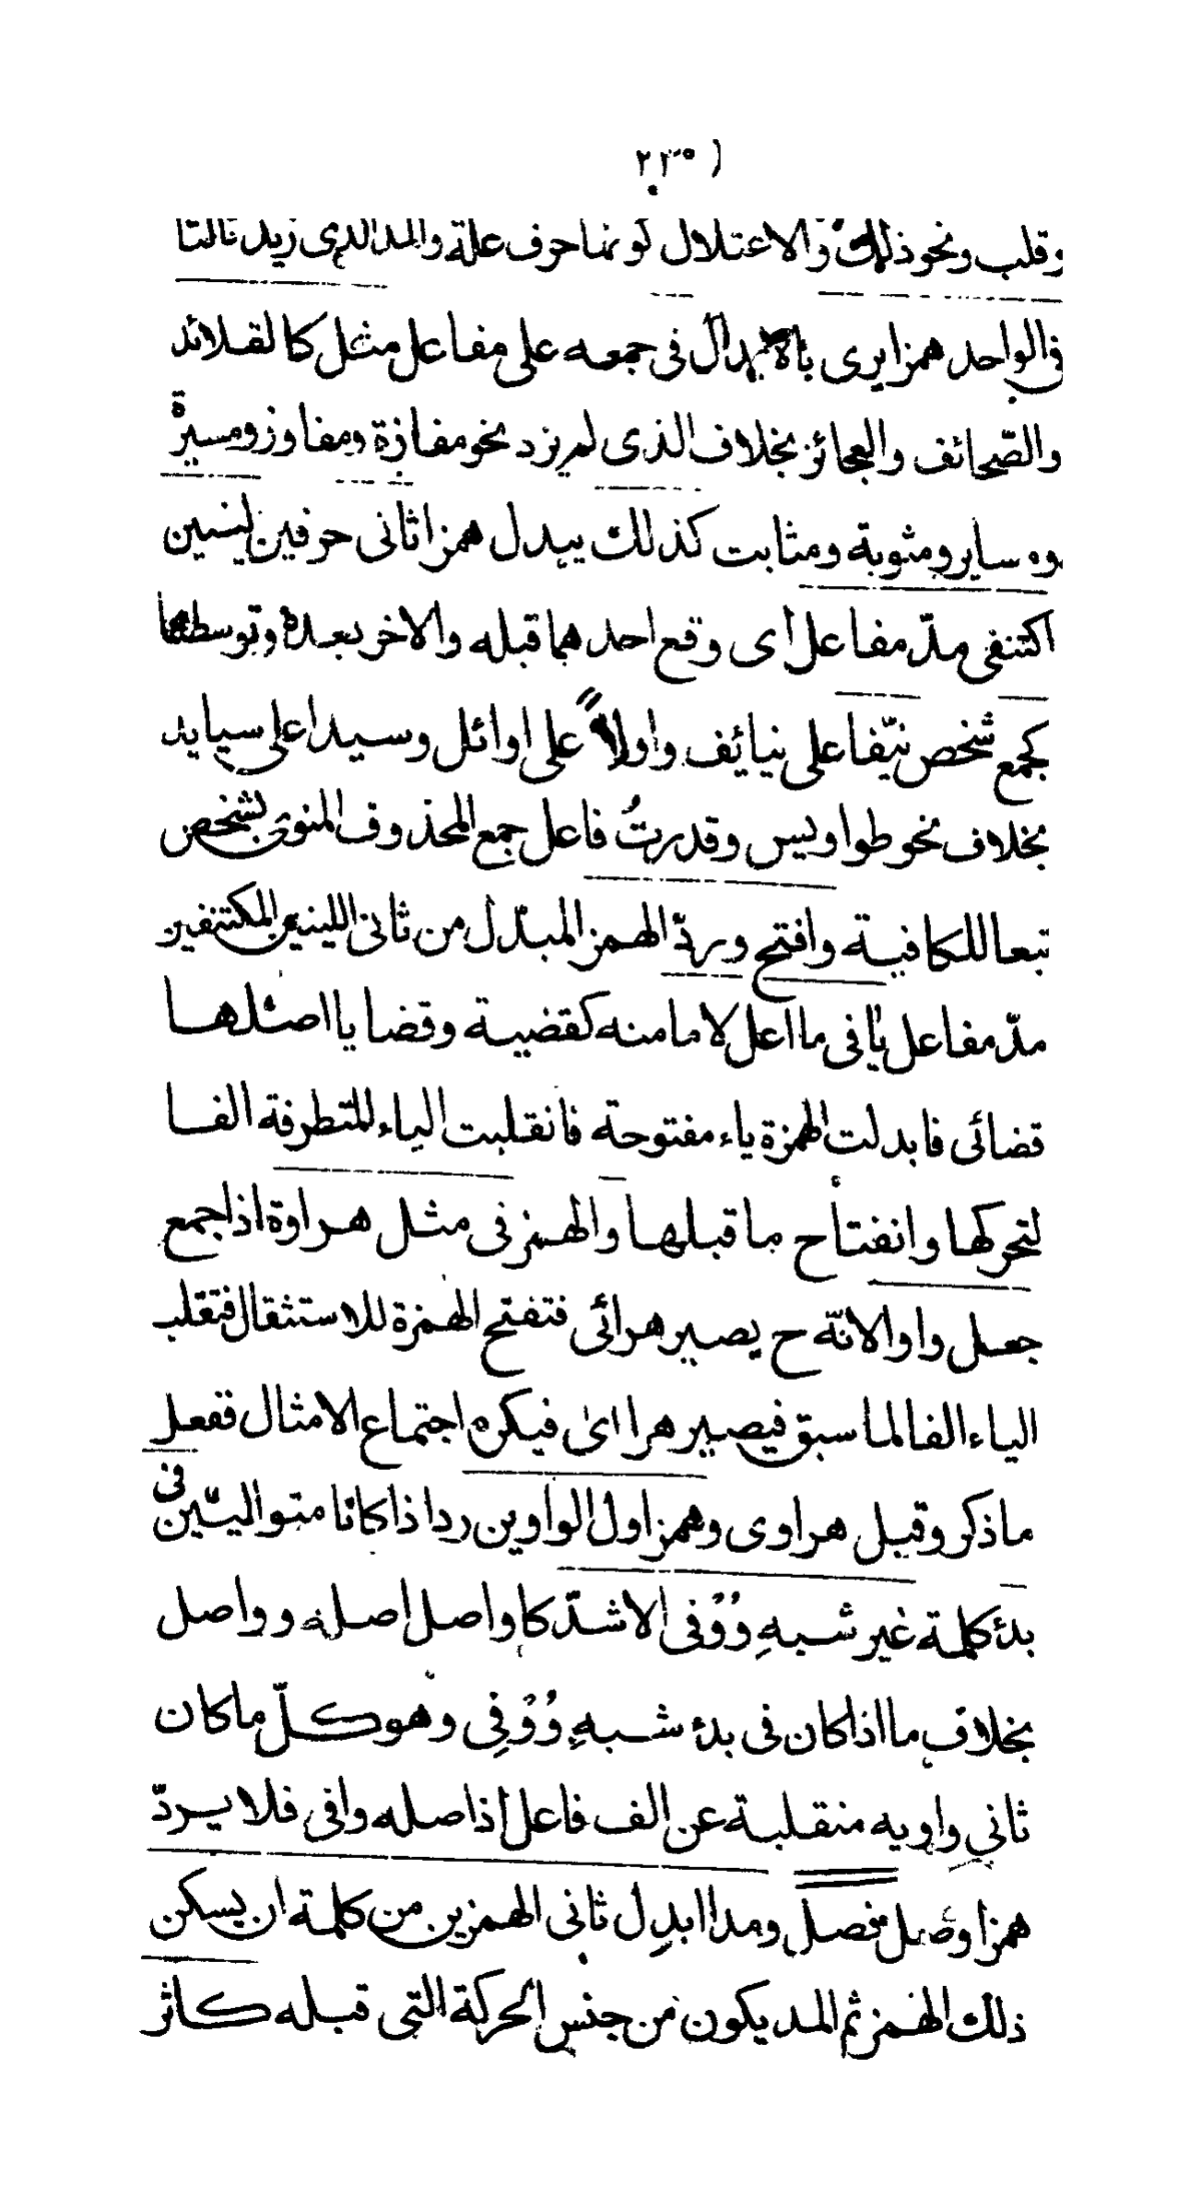 ٢٣٥ )
وقلب ونحو ذلك والاعتلال كونها حرف علة والمد الذى زيد ثالثا
فى الواحد همزا يرى بالابدال فى جمعه على مفاعل مثل كالقلائد
والصّحائف والعجائز بخلاف الذى لم يزد نحو مفازة ومفاوز ومسيرة
ومساير ومثوبة ومثابت كذلك يبدل همزا ثانى حرفين لينين
اكتنفى مدّ مفاعل أى وقع احدهما قبله والاخر بعده وتوسطهما
كجمع شخص نيّفا على نيائف واولا على اوائل وسيدا على سيايد
بخلاف نحو طواويس وقدرتُ فاعل جمع المحذوف المنوى بشخص
تبعا للكافية وافتح وردّ الهمز المبدّل من ثانى اللينين المكتنفين
مدّ مفاعل يا فى ما اعل لاما منه كقضية وقضايا اصلها
قضائى فابدلت الهمزة ياء مفتوحة فانقلبت الياء المتطرفة الفا
لتحركها وانفتاح ما قبلها والهمز فى مثل هراوة اذا جمع
جعل واوا لانّه ح يصير هرائى فتفتح الهمزة للاستثقال فتقلب
الياء الفا لما سبق فيصير هراأى فيكره اجتماع الامثال ففعل
ما ذكر وقيل هراوى وهمزا اول الواوين ردا ذا كانا متواليّين فى
بدئ كلمة غير شبهِ وُوُفى الاشدّ كاواصل اصله وواصل
بخلاف ما اذا كان فى بدئ شبهِ وُوُفِى وهو كلّ ما كان
ثانى واويه منقلبة عن الف فاعل أذ اصله وافى فلا يردّ
همزا وصل فصل ومدا ابدِل ثانى الهمزين من كلمة ان يسكن
ذلك الهمز ثم المد يكون من جنس الحركة التى قبله كاثر